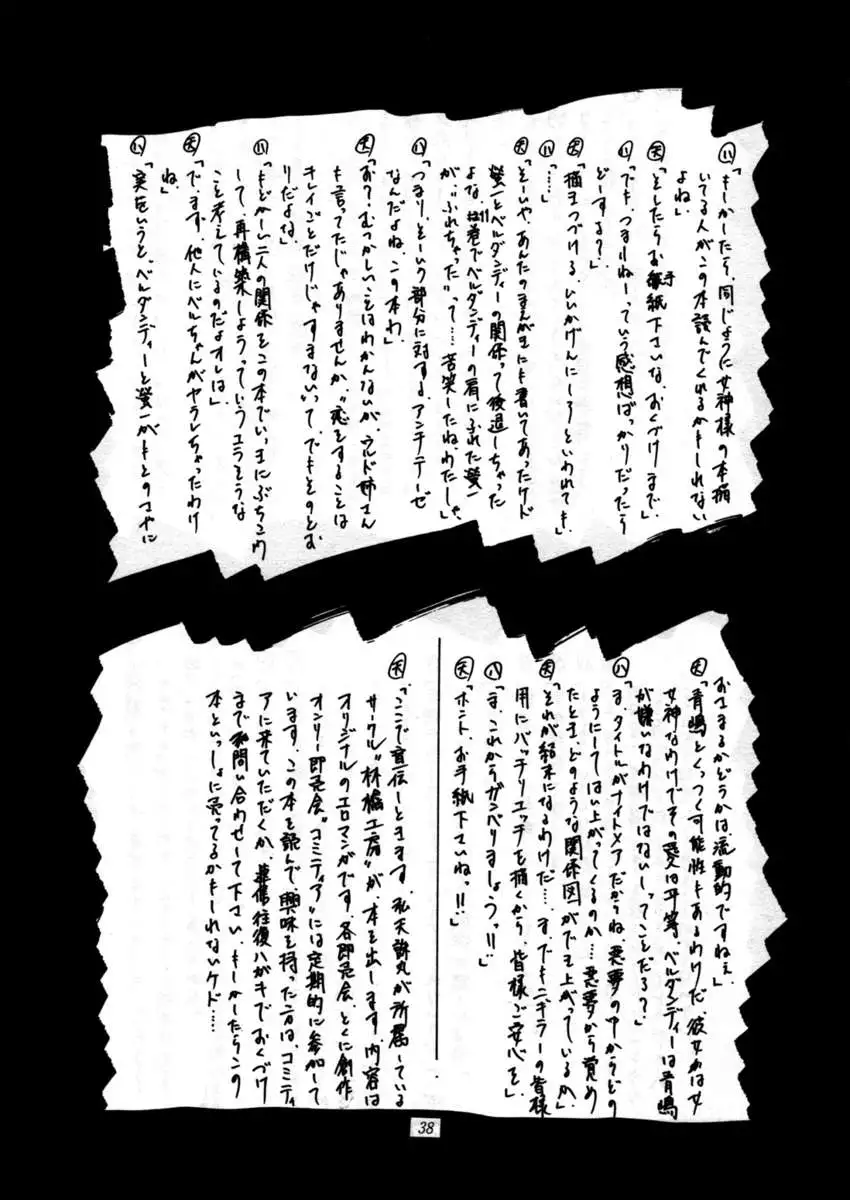 ㋩「もしかしたら、同じように女神様の本描
いてる人がこの本読んでくれるかもしれない
よね」
㊝「そしたらお手紙下さいな、おくづけまで」
㋩「でも、つまりねーっていう感想ばっかりだったら
どーする?」
「描きつづける。いいかげんにしろといわれても」
㋩「……」
「そーいや、あんたのまんがにも書いてあったケド
螢一とベルダンディーの関係って後退しちゃった
よな、11巻でベルダンディーの肩にふれた螢一
が、"ふれちゃった"って……苦笑したね、わたしゃ」
㋩「つまり、そーいう部分に対するアンチテーゼ
なんだよね、この本わ」
「お?むつかしいことはわかんないが、ウルド姉さん
も言ってたじゃありませんか、"恋をすることは
キレイごとだけじゃすまない"って、でもそのとお
りだよな」
㋩「もどかしい二人の関係をこの本でいっきにぶちこわ
して、再構築しようっていうエラそうな
こと考えているのだよオレは」
「で、まず、他人にベルちゃんがヤラレちゃったわけ
ね」
㋩「実をいうと、ベルダンディーと螢一がもとのさやに
おさまるかどうかは、流動的ですねぇ」
「青嶋とくっつく可能性もあるわけだ、彼女かは女
女神なわけでその愛は平等、ベルダンディーは青嶋
が嫌いなわけではないしってことだろ?」
㋩「ま、タイトルがナイトメアだからね 悪夢の中からどの
ようにしてはい上がってくるのか…悪夢から覚め
たとき、どのような関係図ができ上がっているか」
「それが結末になるわけだ…ま、でもニナラーの皆様
用にバッチリエッチを描くから、皆様ご安心を」
㋩「ま、これからガンバりましょうっ!!」
「ホント、お手紙下さいねっ!!」
「ここで宣伝しときます、私天誅丸が所属している
サークル"林檎工房"が、本を出します。内容は
オリジナルのエロマンガです。各即売会、とくに創作
オンリー即売会"コミティア"には定期的に参加して
います、この本を読んで、興味を持った方は、コミティ
アに来ていただくか、往復ハガキで、おくづけ
まで問い合わせして下さい、もしかしたらこの
本といっしょに売ってるかもしれないケド……
38